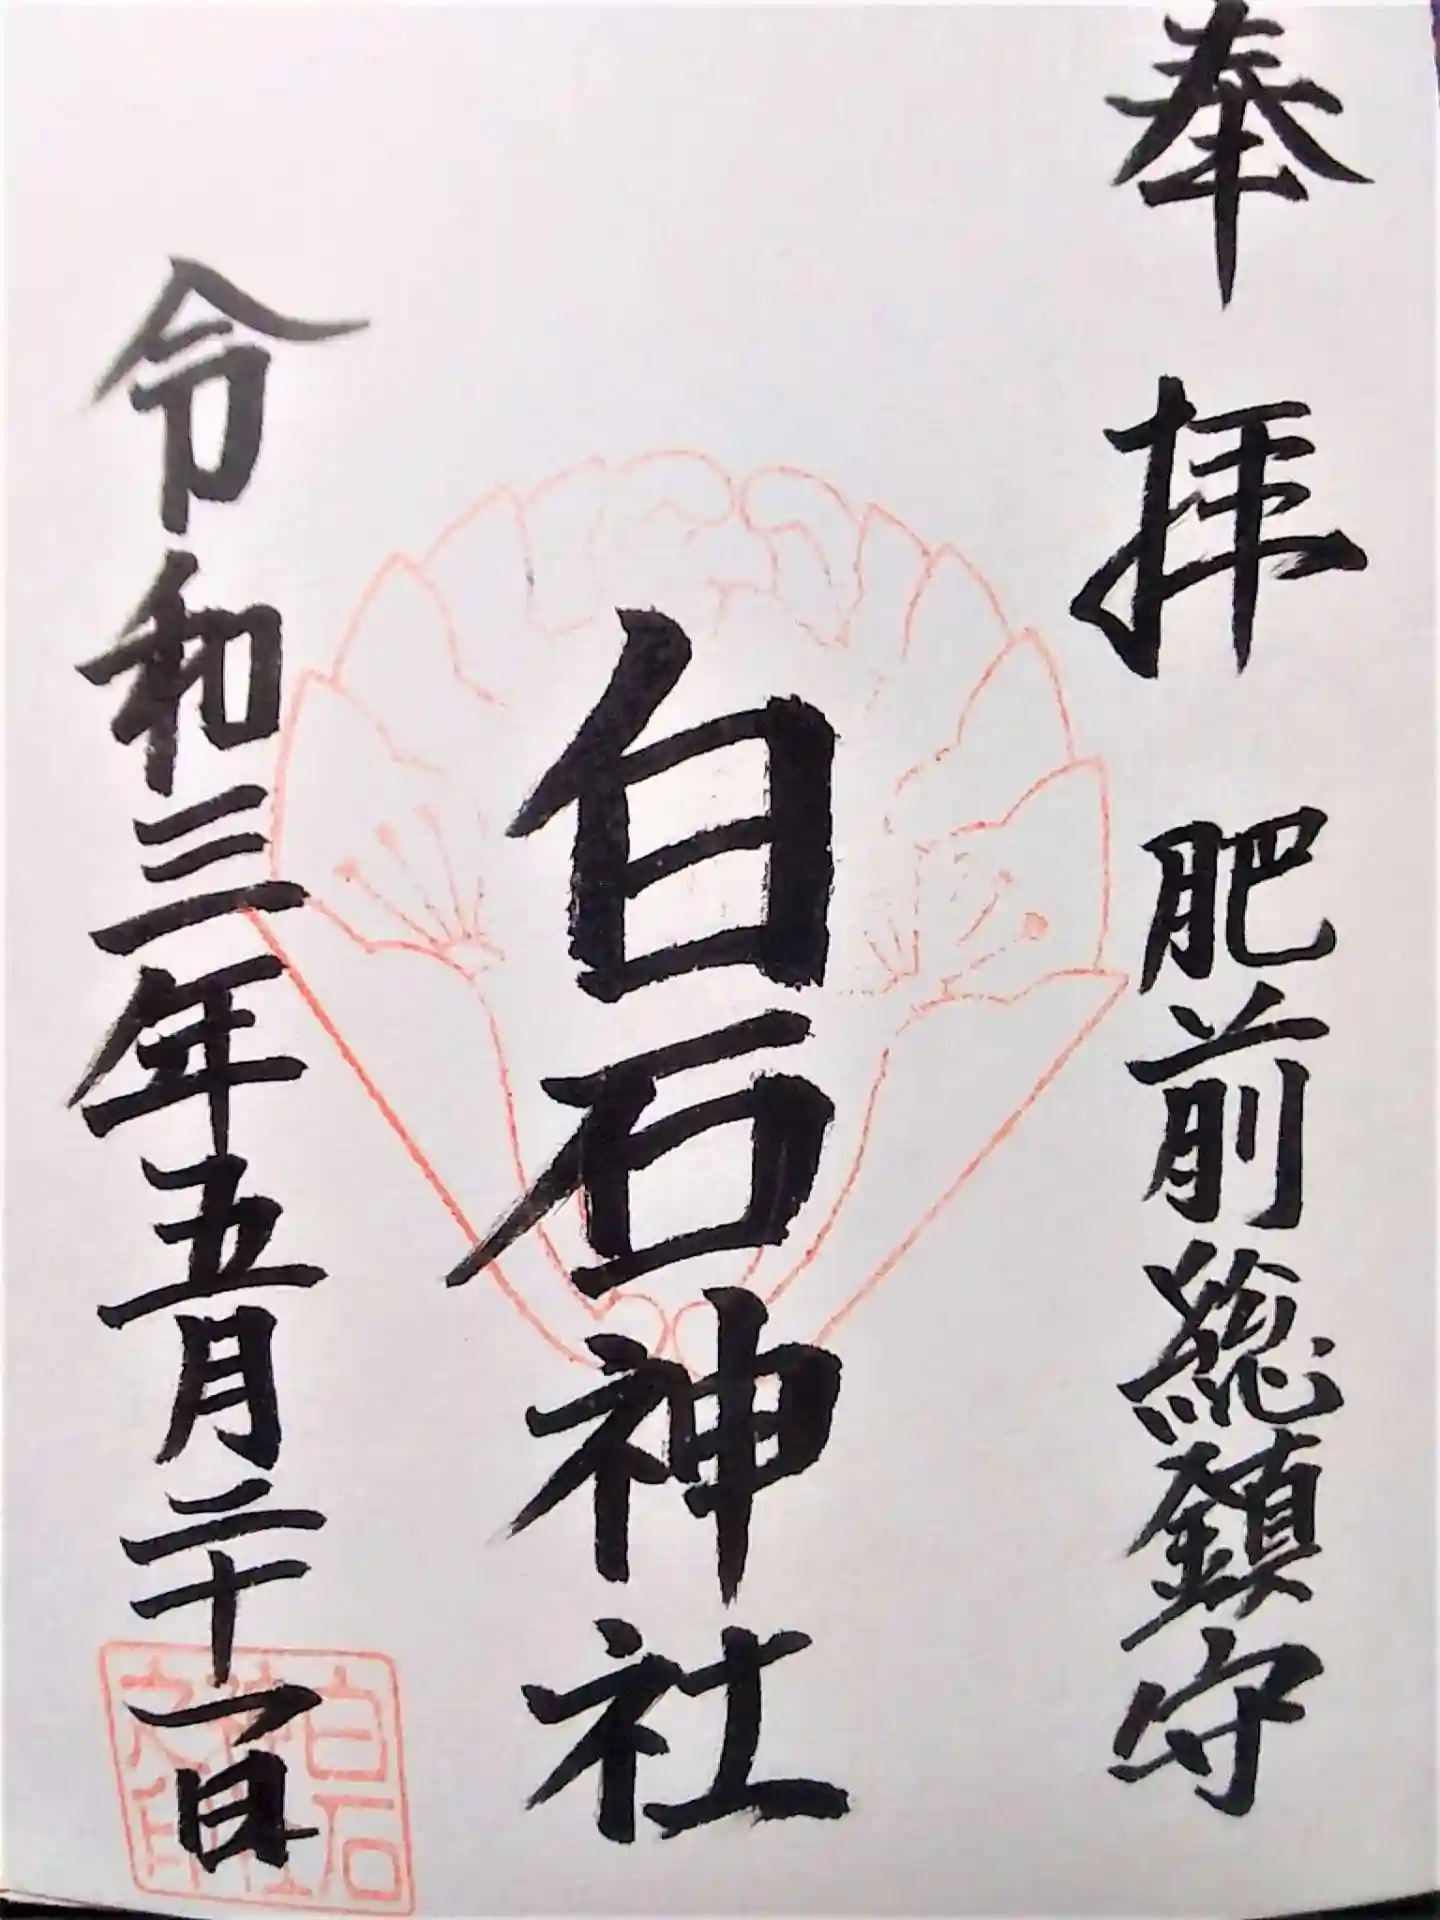 奉拝
肥前総鎮守
白石神社
令和三年五月二十一日
白石
神社
之印